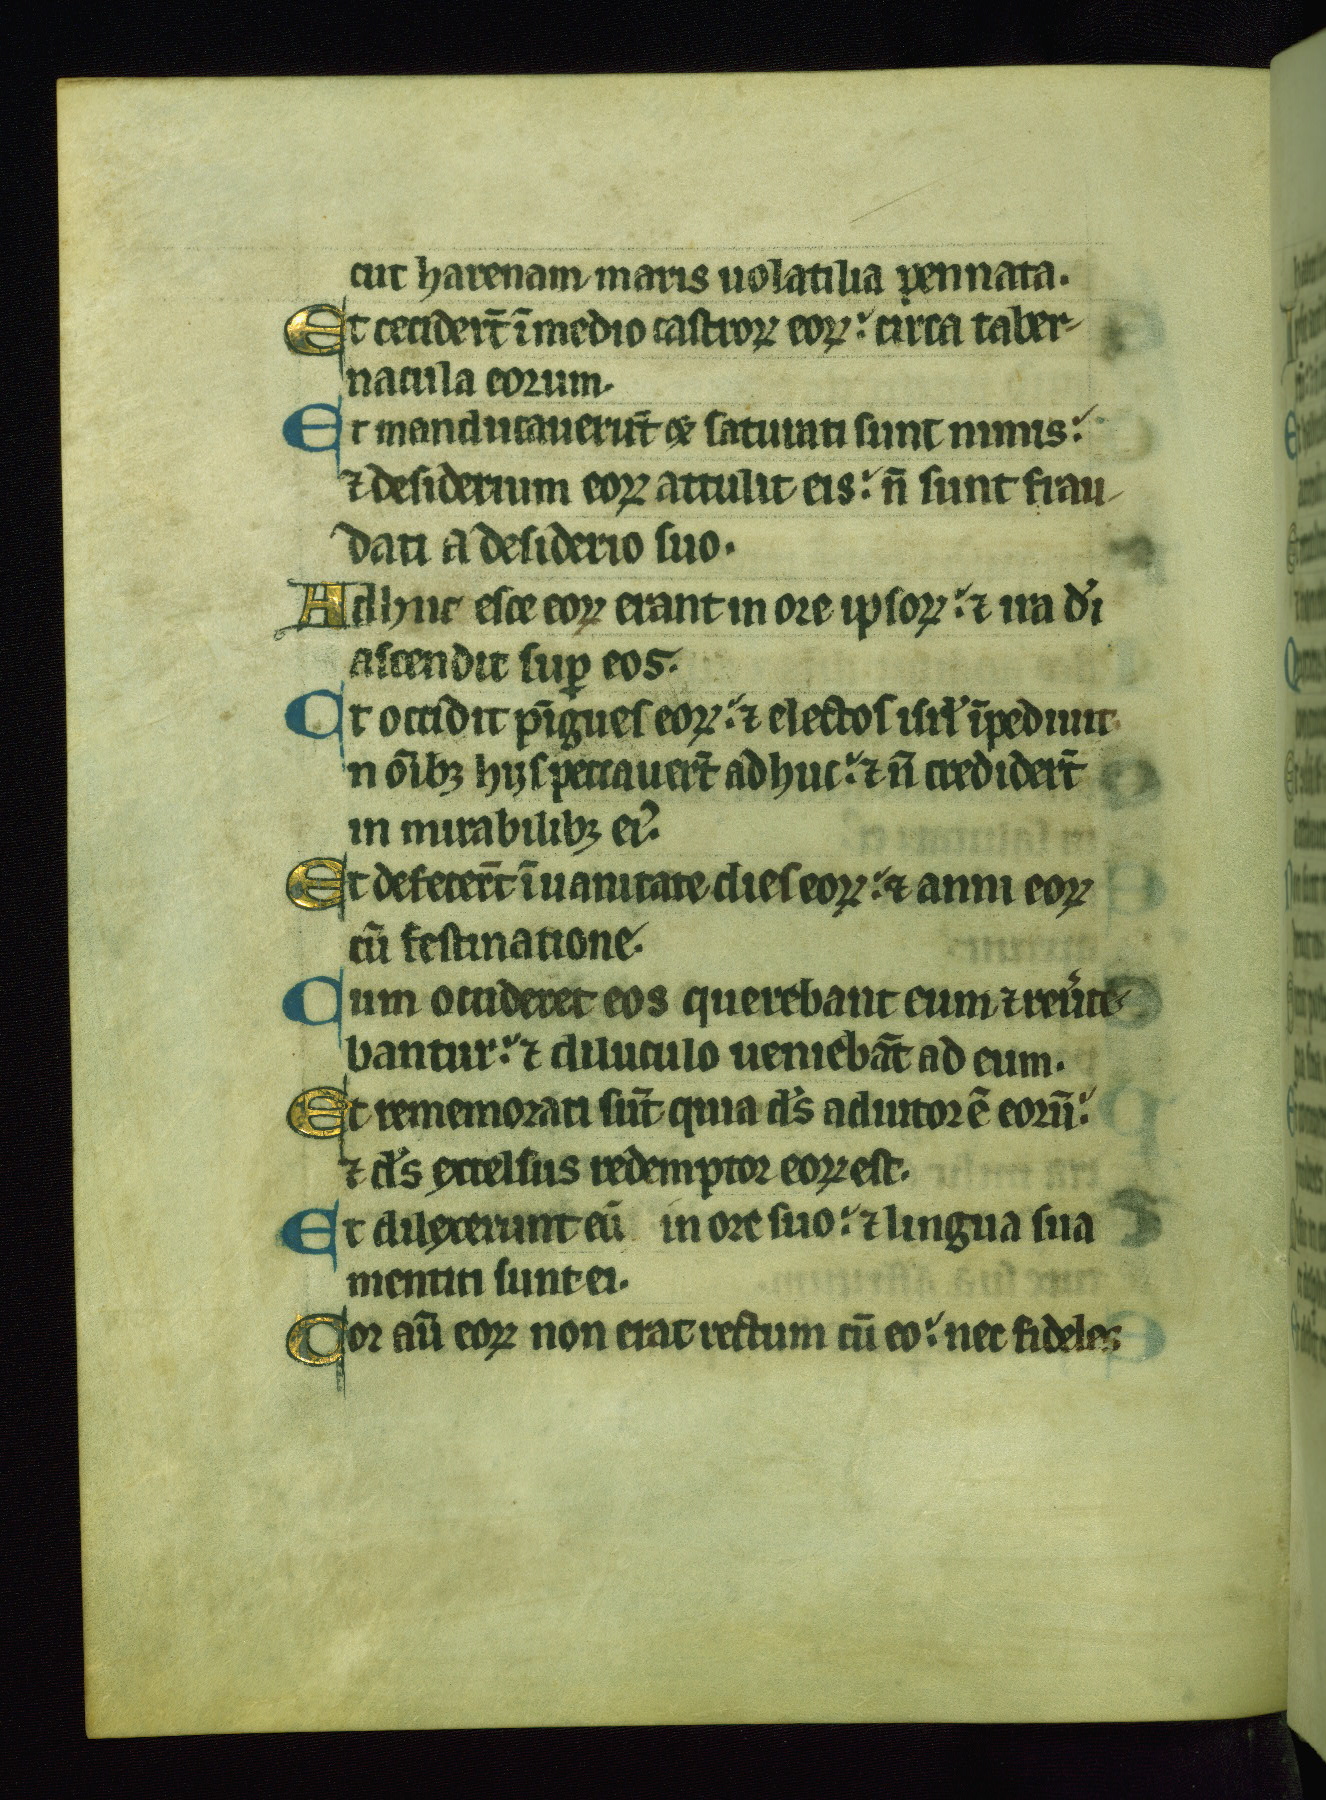 cut harenam maris uolatilia pennata.
Et cecider̄t ī medio castroꝝ eoꝝ: circa taber-
nacula eorum.
Et manducauerūt & saturati sunt nimis:
⁊ desiderium eoꝝ attulit eis: n̄ sunt frau-
dati a desiderio suo.
Adhuc esce eoꝝ erant in ore ipsoꝝ: ⁊ ira d̓i
ascendit suꝑ eos.
Et occidit pīgues eoꝝ: ⁊ electos isrl̓ īpediuit
n oībꝫ hijs peccauer̄t adhuc: ⁊ n̄ credider̄t
in mirabilibꝫ ei᾽.
Et defecer̄t ī uanitate dies eoꝝ: ⁊ anni eoꝝ
cū festinatione.
Cum occideret eos querebant eum ⁊ reu̓te-
bantur: ⁊ diluculo ueniebāt ad eum.
Et rememorati sūt quia d̓s adiutor ē eorū:
⁊ d̓s excelsus redemptor eoꝝ est.
Et dilexerunt eū in ore suo: ⁊ lingua sua
mentiti sunt ei.
Cor aū eoꝝ non erat rectum cū eo: nec fideles